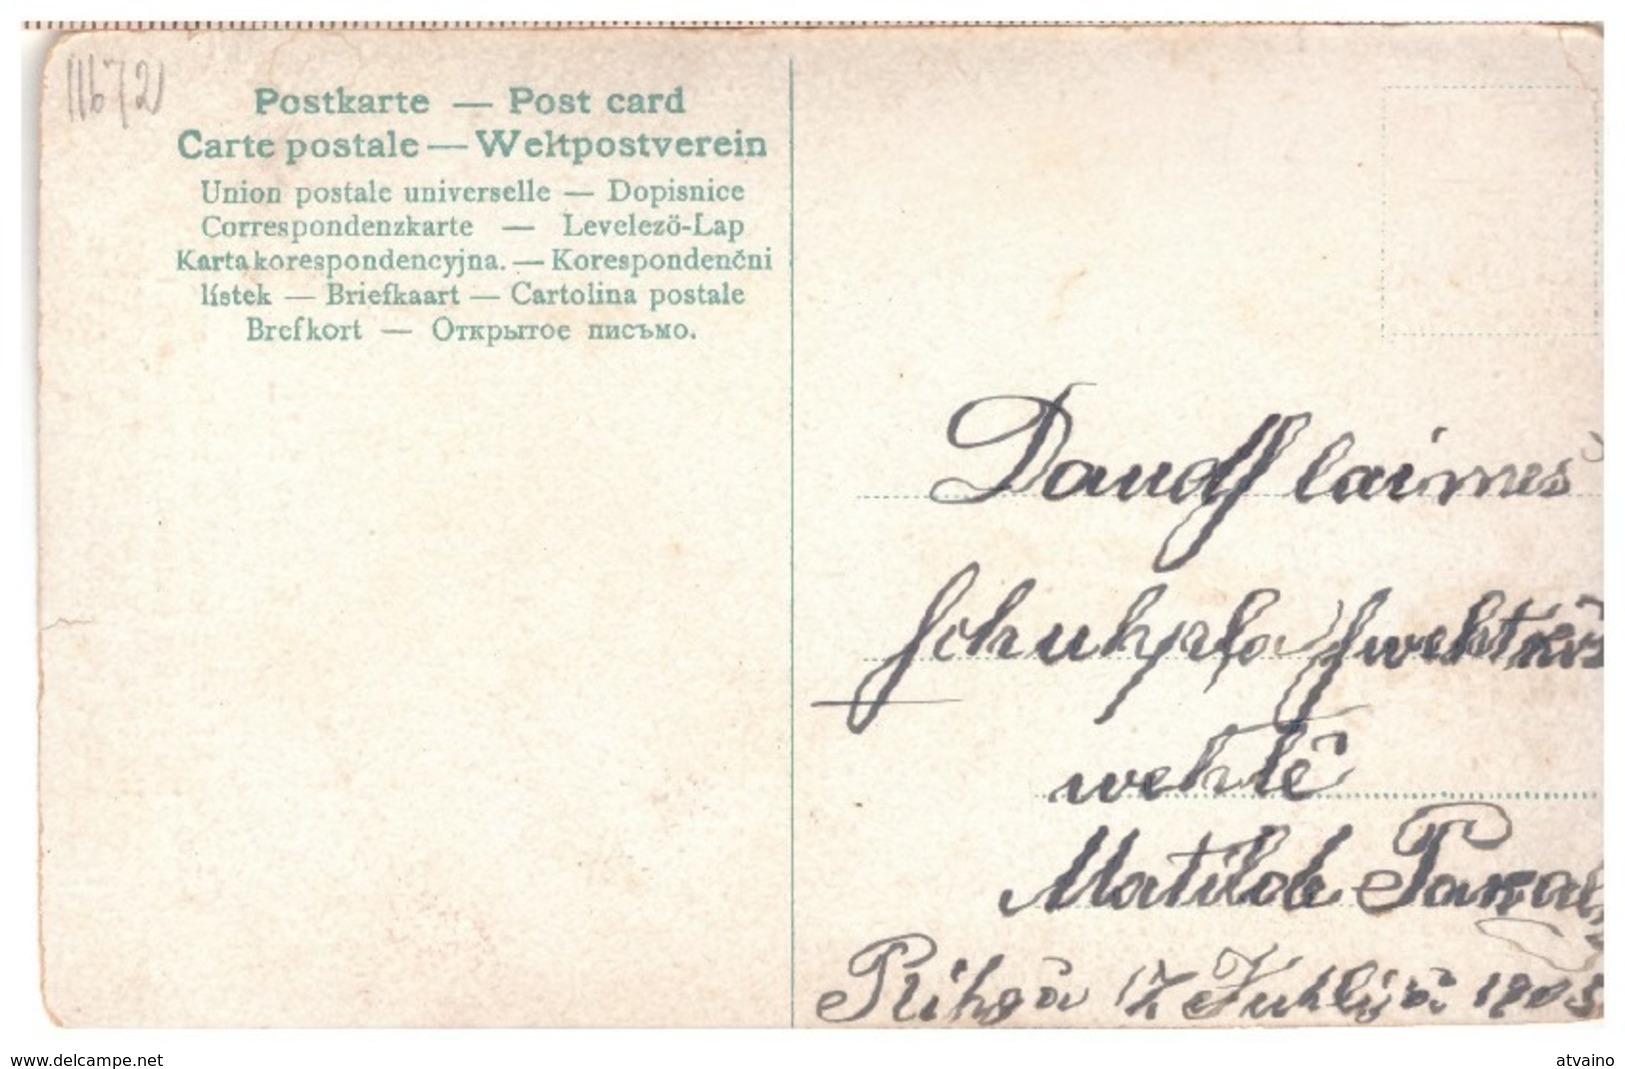 11672
Postkarte — Post card
Carte postale — Weltpostverein
Union postale universelle — Dopisnice
Correspondenzkarte — Levelező-Lap
Karta korespondencyjna. — Korespondenčni
lístek — Briefkaart — Cartolina postale
Brefkort — Открытое письмо.
Daudſ laimes
ſchuhpla ſwehtkōs
wehlē
Matilde
Rihgā 17 Juhlijā 1905
www.delcampe.net
atvaino